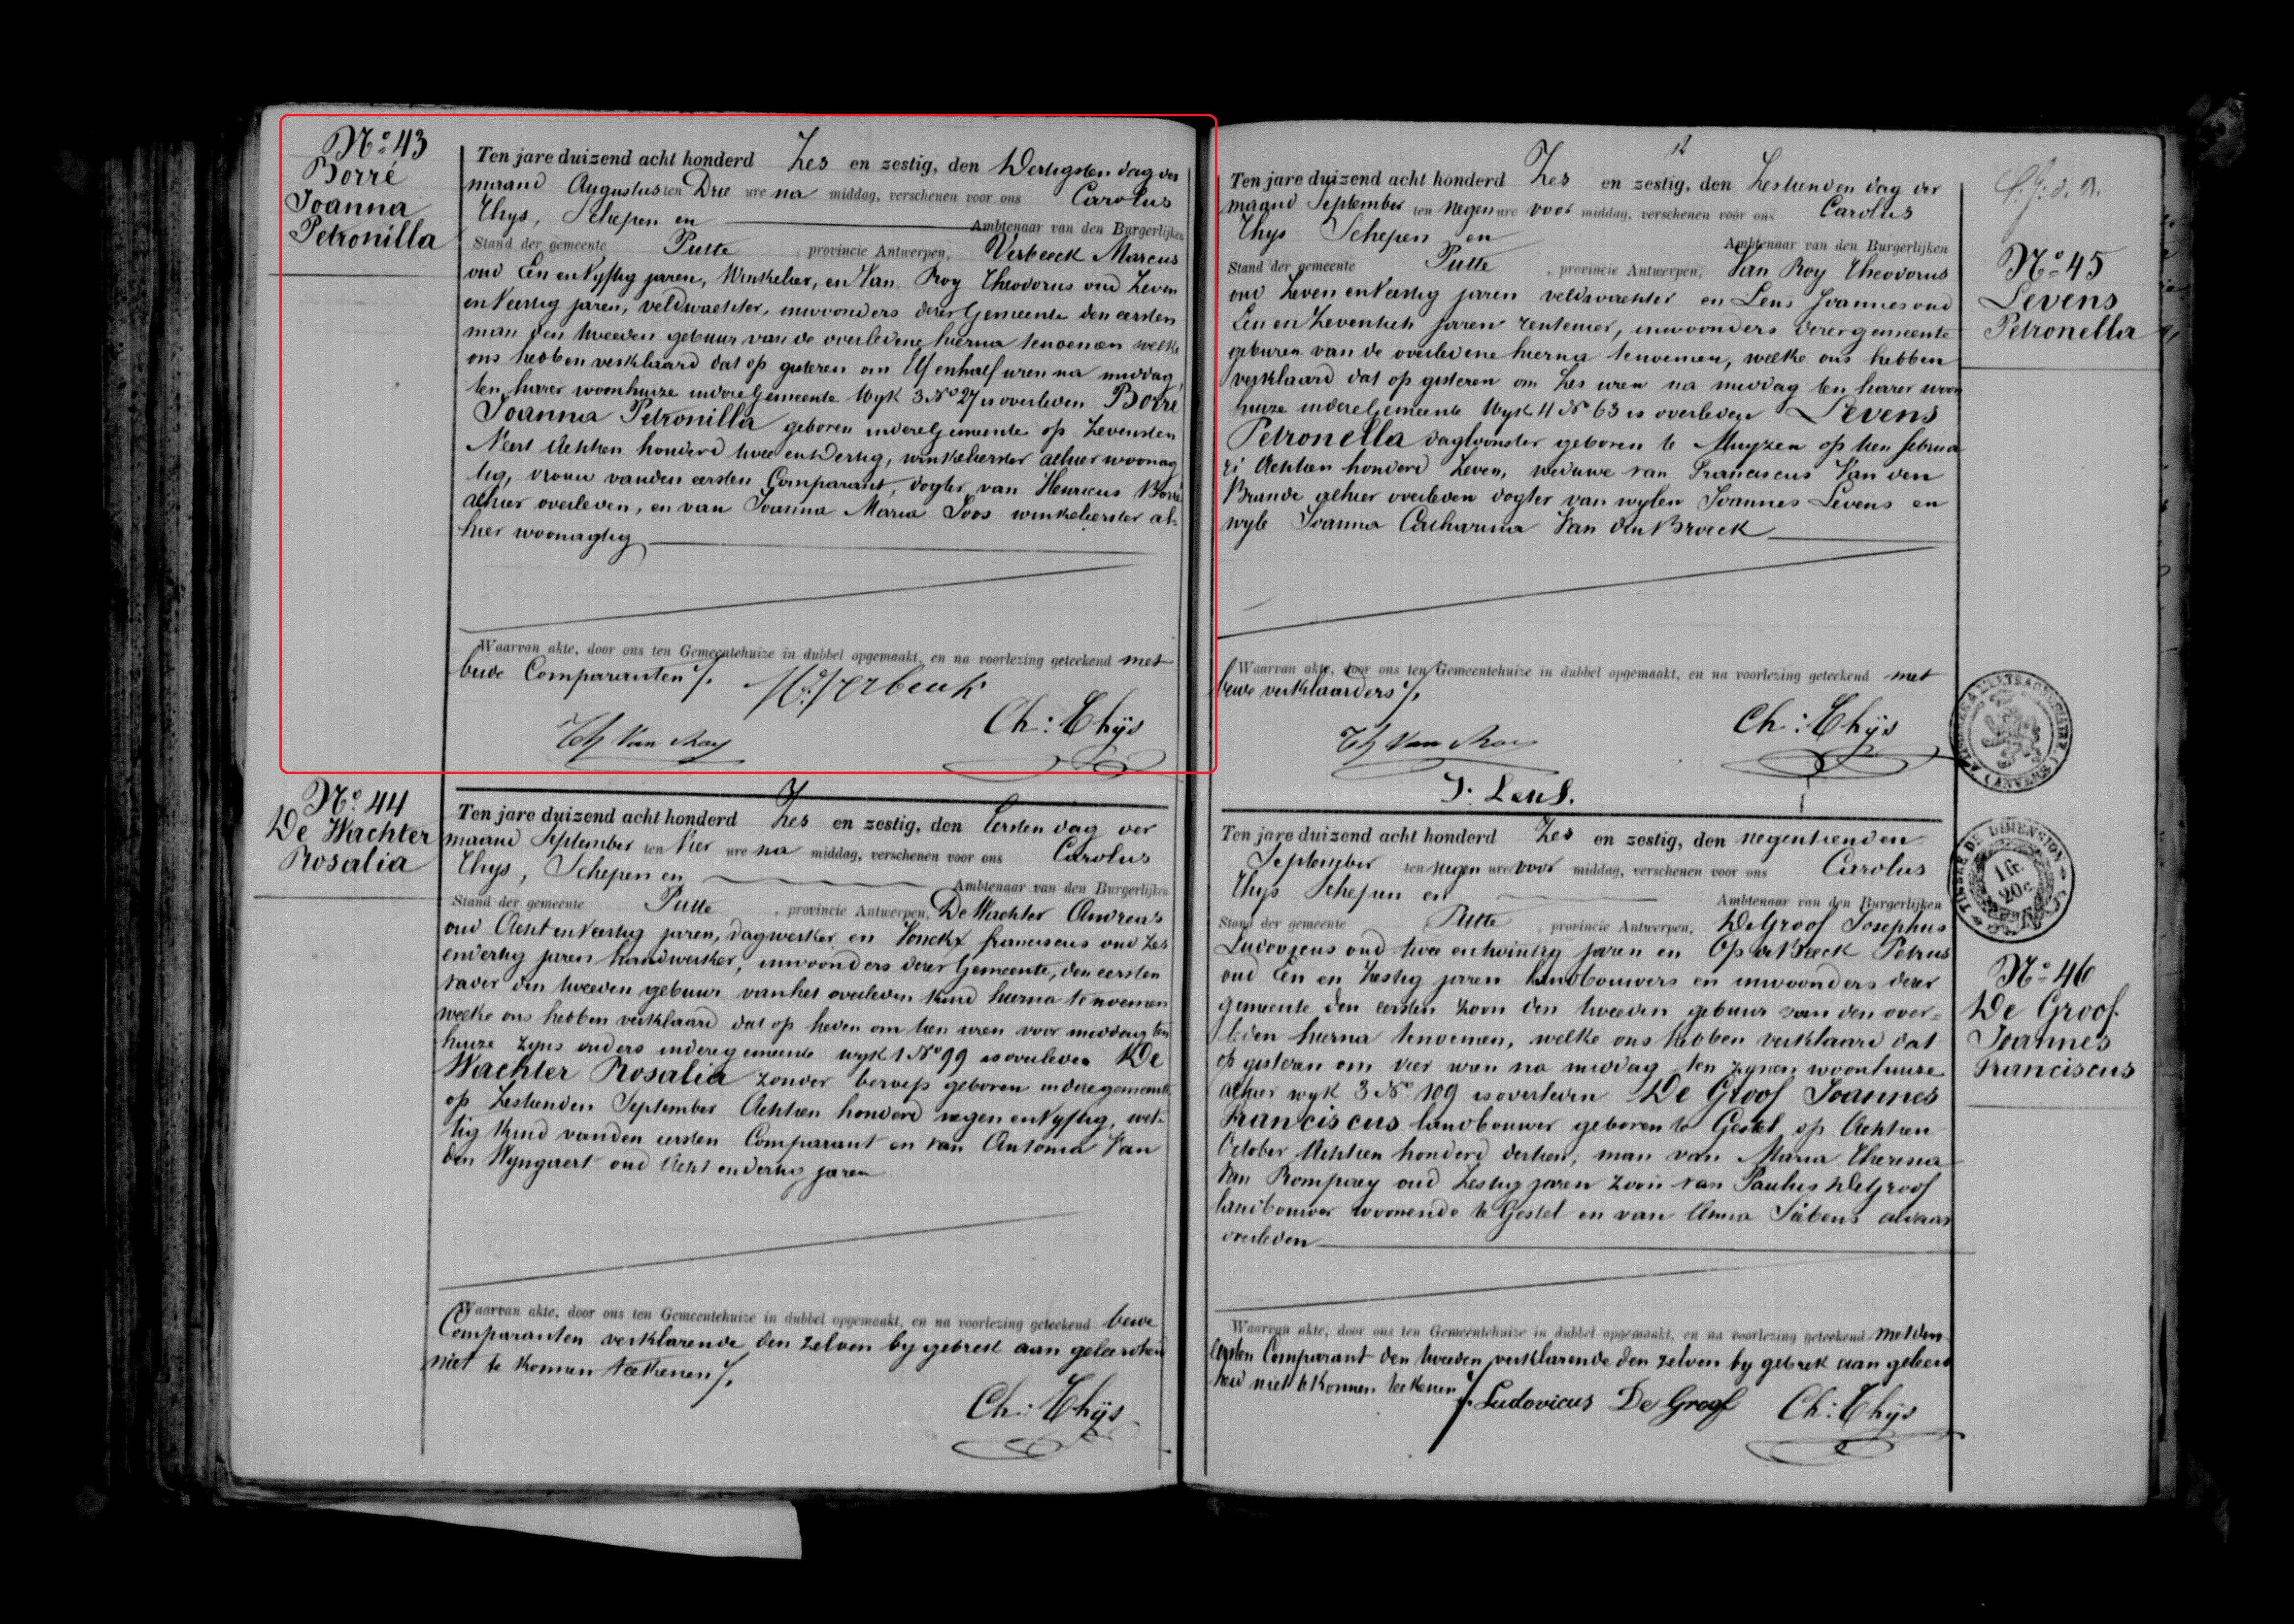 Nº 43
Borré
Joanna
Petronilla
Ten jare duizend acht honderd Zes en zestig, den Dertigsten dag der
maand Augustus ten Drie ure na middag, verschenen voor ons Carolus
Thys, Schepen en Ambtenaar van den Burgerlijken
Stand der gemeente Putte, provincie Antwerpen, Verbeeck Marcus
oud Een en Vyftig jaren, Winkelier, en Van Roy Theodorus oud Zeven
en Veertig jaren, veldwachter, inwoonders dezer Gemeente den eersten
man den tweeden gebuur van de overledene hierna tenoemen welke
ons hebben verklaard dat op gisteren om Elf en half uren na middag,
ten harer woonhuize indeze Gemeente Wyk 3 Nº 27 is overleden Borré
Joanna Petronilla geboren indeze Gemeente op Zevensten
Meert Achtien honderd twee en Dertig, winkelierster alhier woonag
tig, vrouw vanden eersten Comparant, dogter van Henricus Borré
alhier overleden, en van Joanna Maria Soos winkelierster al-
hier woonagtig
Waarvan akte, door ons ten Gemeentehuize in dubbel opgemaakt, en na voorlezing geteekend met
beide Comparanten ./.
M. Verbeeck
Th Van Roy
Ch: Thÿs
Nº 44
De Wachter
Rosalia
Ten jare duizend acht honderd Zes en zestig, den Eersten dag der
maand September ten Vier ure na middag, verschenen voor ons Carolus
Thys, Schepen en Ambtenaar van den Burgerlijken
Stand der gemeente Putte, provincie Antwerpen, De Wachter Andreas
oud Acht en Veertig jaren, dagwerker en Vonckx franciscus oud Zes
endertig jaren handwerker, inwoonders dezer Gemeente, den eersten
vader den tweeden gebuur vanhet overleden kind hierna te noemen
welke ons hebben verklaard dat op heden om tien uren voor middag ten
huize zyns ouders indezegemeente wyk 1 Nº 99 is overleden De
Wachter Rosalia zonder beroep geboren indezegemeente
op Zestienden September Achtien honderd negen en Vyftig, wet-
tig kind vanden eersten Comparant en van Antonia Van
den Wyngaert oud Acht endertig jaren
Waarvan akte, door ons ten Gemeentehuize in dubbel opgemaakt, en na voorlezing geteekend beide
Comparanten verklarende den zelven by gebrek aan geleerdheid
niet te konnen teekenen ./.
Ch: Thÿs
12
Ten jare duizend acht honderd Zes en zestig, den Zestienden dag der
maand September ten negen ure voor middag, verschenen voor ons Carolus
Thys Schepen en Ambtenaar van den Burgerlijken
Stand der gemeente Putte, provincie Antwerpen, Van Roy Theodorus
oud Zeven en Veertig jaren veldwachter en Lens Joannes oud
Een en Zeventich jaren rentenier, inwoonders dezer gemeente
geburen van de overledene hierna tenoemen, welke ons hebben
verklaard dat op gisteren om Zes uren na middag ten harer woon
huize indeze Gemeente Wyk 4 Nº 63 is overleden Levens
Petronella dagloonster geboren te Muyzen op tien februa
ri Achtien honderd Zeven, weduwe van Franciscus Van den
Brande alhier overleden dogter van wylen Joannes Levens en
wyle Joanna Catharina Van den Broeck
Waarvan akte, door ons ten Gemeentehuize in dubbel opgemaakt, en na voorlezing geteekend met
beide verklaarders ./.
Th Van Roy
Ch: Thÿs
J: Lens.
Nº 45
Levens
Petronella
Ten jare duizend acht honderd Zes en zestig, den negentienden
September ten negen ure voor middag, verschenen voor ons Carolus
Thys Schepen en Ambtenaar van den Burgerlijken
Stand der gemeente Putte, provincie Antwerpen, De Groof Josephus
Ludovicus oud twee entwintig jaren en Op de Beeck Petrus
oud Een en Zestig jaren landbouwers en inwoonders dezer
gemeente den eersten zoon den tweeden gebuur van den over=
leden hierna tenoemen, welke ons hebben verklaard dat
op gisteren om vier uren na middag ten zynen woonhuize
alhier wyk 3 Nº 109 is overleden De Groof Joannes
Franciscus landbouwer geboren te Gestel op Achtien
October Achtien honderd dertien, man van Maria Theresia
Van Rompaey oud Zestig jaren zoon van Paulus De Groof
landbouwer woonende te Gestel en van Anna Siebens aldaar
overleden
Waarvan akte, door ons ten Gemeentehuize in dubbel opgemaakt, en na voorlezing geteekend metden
eersten Comparant den tweeden verklarende den zelven by gebrek aan geleerd
heid niet te konnen teekenen ./.
Ludovicus De Groof
Ch: Thÿs
TIMBRE DE DIMENSION
1 fr.
20 c.
Nº 46
De Groof
Joannes
Franciscus